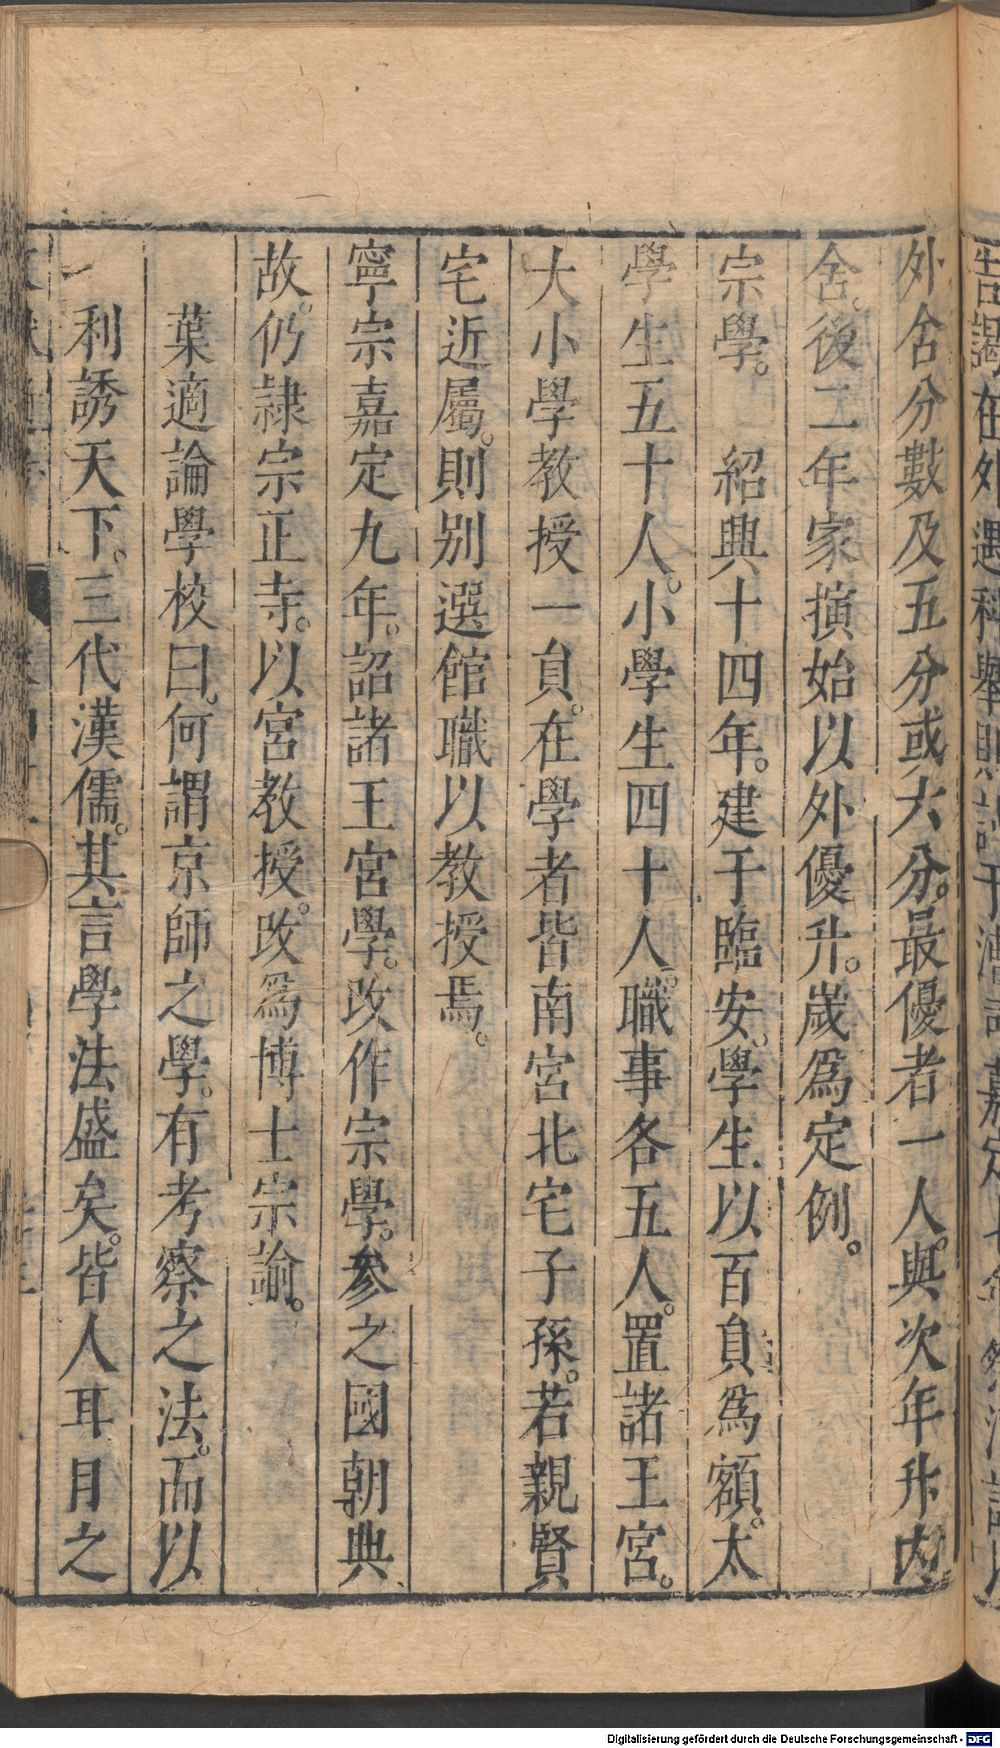 外舍分數及五分或六分。最優者一人。與次年升內
舍。後二年家㨪始以外優升。歲爲定例。
宗學。 紹興十四年。建于臨安。學生以百負爲額。太
學生五十人。小學生四十人。職事各五人。置諸王宮。
大小學教授一負。在學者皆南宮北宅子孫。若親賢
宅近屬。則别選館職以教授焉。
寧宗嘉定九年。詔諸王宮學。改作宗學。參之國朝典
故。仍隷宗正寺。以宮教授。改爲博士宗諭。
葉適論學校曰。何謂京師之學。有考察之法。而以
利誘天下。三代漢儒。其言學法盛矣。皆人耳目之
Digitalisierung gefördert durch die Deutsche Forschungsgemeinschaft - DFG